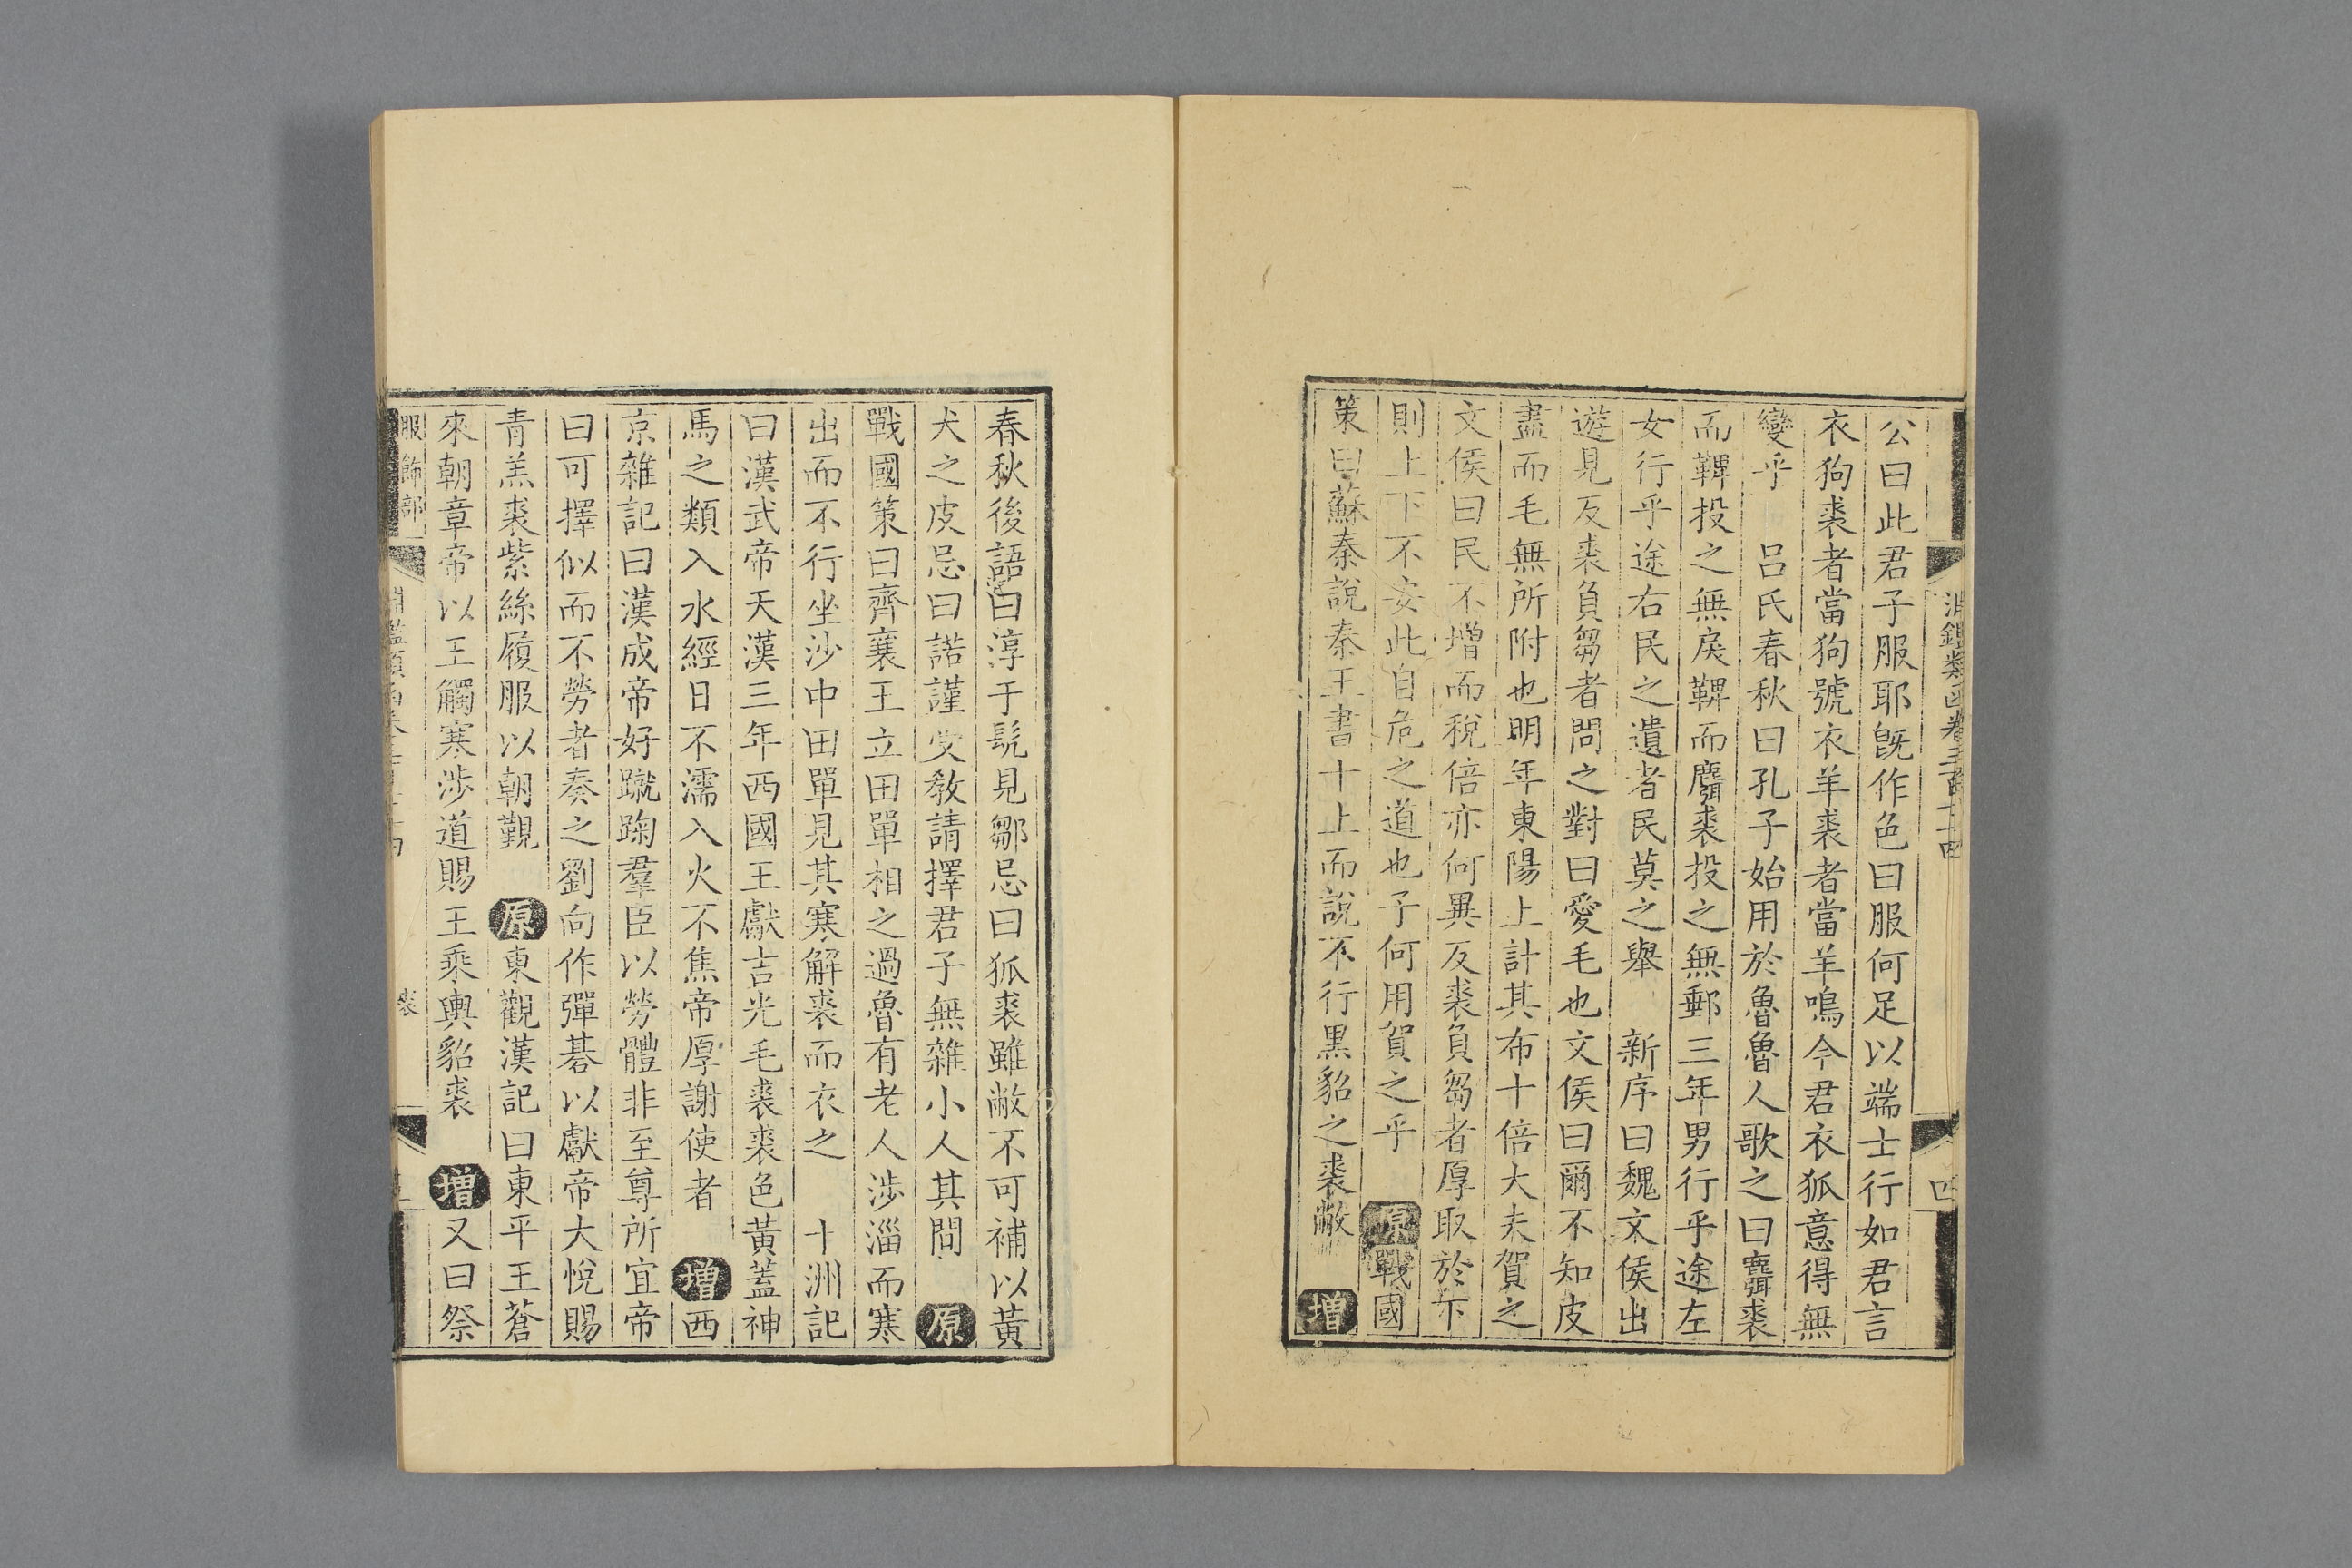 淵鑑類函卷三百七十四
四
公曰此君子服耶旣作色曰服何足以端士行如君言
衣狗裘者當狗號衣羊裘者當羊鳴今君衣狐意得無
變乎　呂氏春秋曰孔子始用於魯魯人歌之曰麛裘
而鞞投之無戾鞞而麛裘投之無郵三年男行乎途左
女行乎途右民之遺者民莫之舉　新序曰魏文侯出
遊見反裘負芻者問之對曰愛毛也文侯曰爾不知皮
盡而毛無所附也明年東陽上計其布十倍大夫賀之
文侯曰民不增而稅倍亦何異反裘負芻者厚取於下
則上下不安此自危之道也子何用賀之乎　原戰國
策曰蘇秦說秦王書十上而說不行黑貂之裘敝　增
春秋後語曰淳于髡見鄒忌曰狐裘雖敝不可補以黃
犬之皮忌曰諾謹受教請擇君子無雜小人其間　原
戰國策曰齊襄王立田單相之過魯有老人涉淄而寒
出而不行坐沙中田單見其寒解裘而衣之　十洲記
曰漢武帝天漢三年西國王獻吉光毛裘裘色黃蓋神
馬之類入水經日不濡入火不焦帝厚謝使者　增西
京雜記曰漢成帝好蹴踘羣臣以勞體非至尊所宜帝
曰可擇似而不勞者奏之劉向作彈棊以獻帝大悅賜
青羔裘紫絲履服以朝覲　原東觀漢記曰東平王蒼
來朝章帝以王觸寒涉道賜王乘輿貂裘　增又曰祭
服飾部　裘